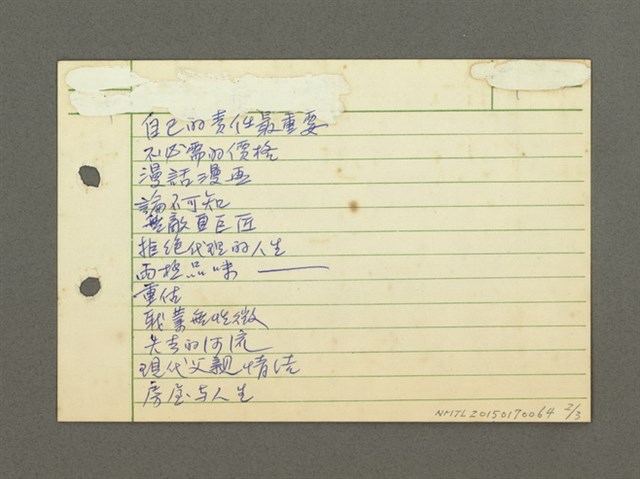 自己的責任最重要
不必需的價格
漫話漫画
論不可知
無敵真巨匠
拒絕代理的人生
兩極品味 ——
重估
職業無性徵
失去的河流
現代父親情结
房屋与人生
NMTL20150170064 2/3